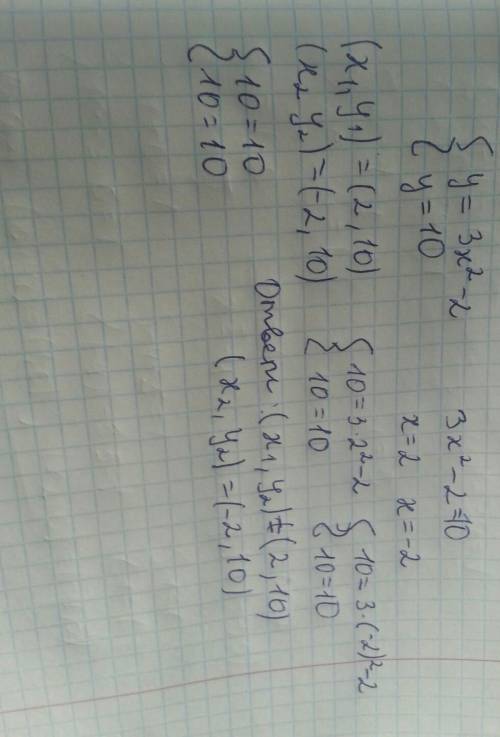 { y = 3x² - 2
{ y = 10
3x² - 2 = 10
x = 2 x = -2
(x₁, y₁) = (2, 10)
(x₂ y₂) = (-2, 10)
{ 10 = 3·2² - 2
{ 10 = 10
{ 10 = 3·(-2)² - 2
{ 10 = 10
{ 10 = 10
{ 10 = 10
Ответ: (x₁, y₂) = (2, 10)
(x₂, y₂) = (-2, 10)